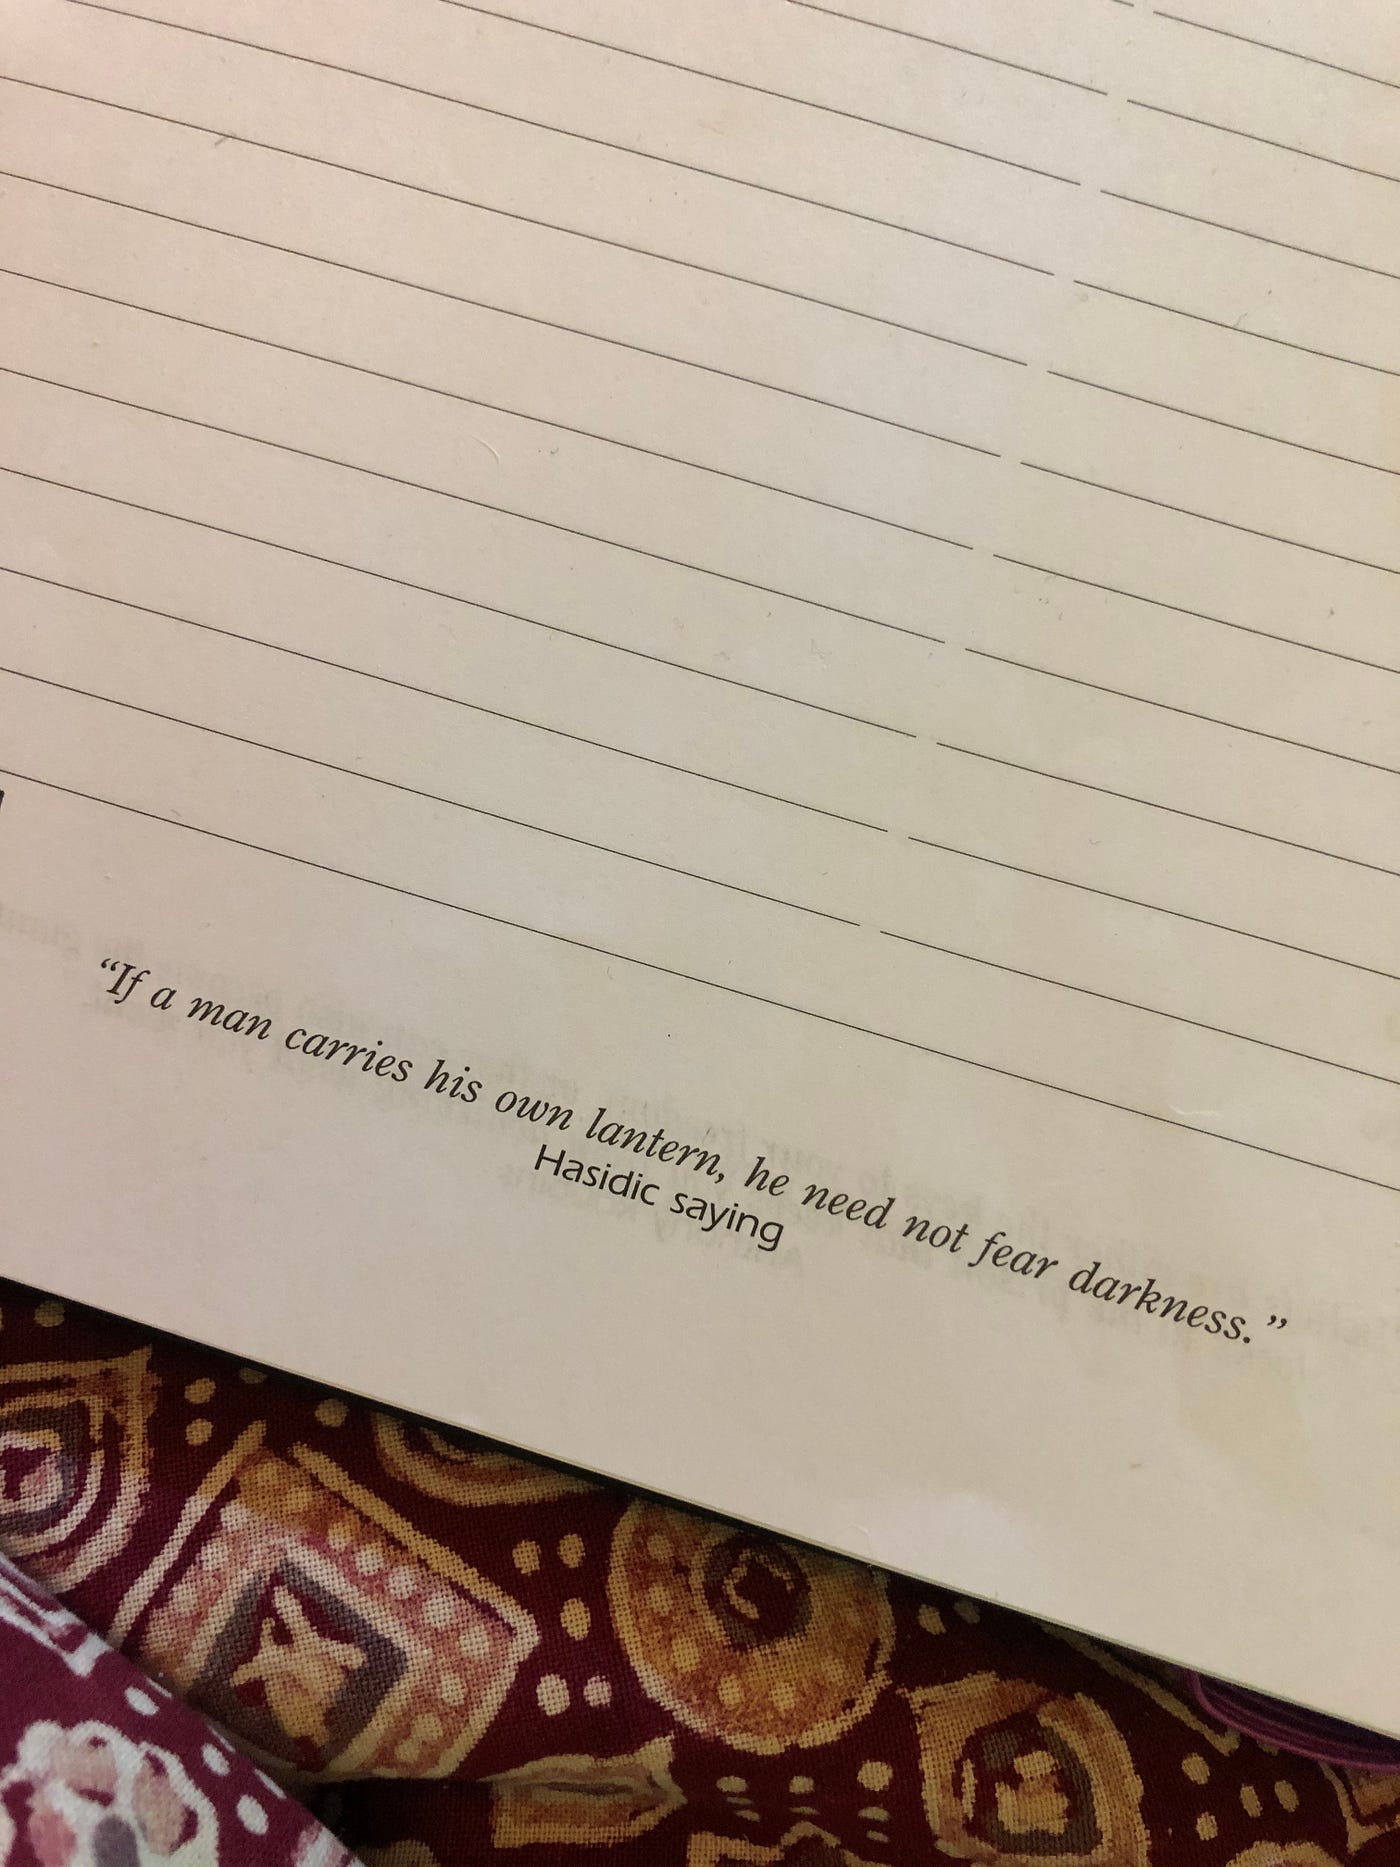 “If a man carries his own lantern, he need not fear darkness.”
Hasidic saying